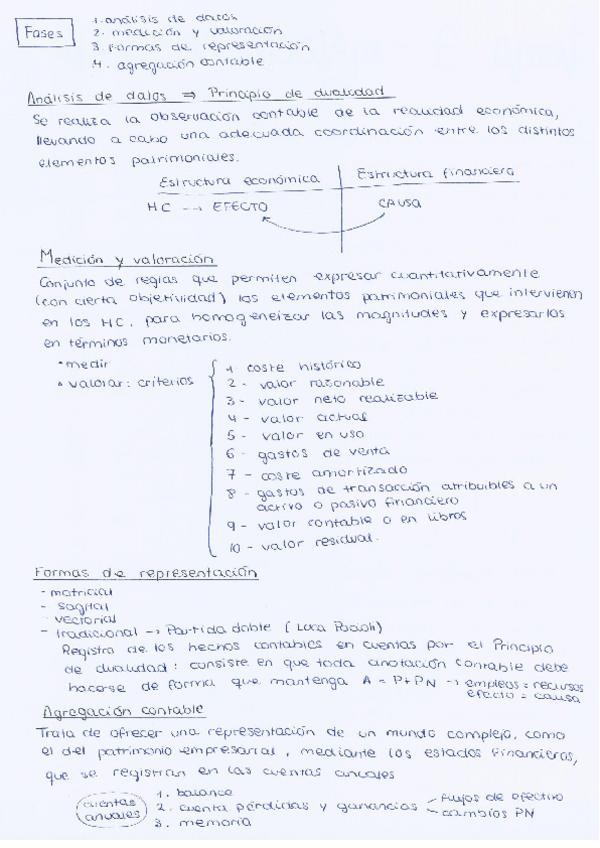 Fases
1. análisis de datos
2. medición y valoración
3. formas de representación
4. agregación contable
Análisis de datos ⇒ Principio de dualidad
Se realiza la observación contable de la realidad económica,
llevando a cabo una adecuada coordinación entre los distintos
elementos patrimoniales.
Estructura económica
Estructura financiera
HC --→ EFECTO
CAUSA
Medición y valoración
Conjunto de reglas que permiten expresar cuantitativamente
(con cierta objetividad) los elementos patrimoniales que intervienen
en los HC, para homogeneizar las magnitudes y expresarlos
en términos monetarios.
• medir
• valorar: criterios
1 coste histórico
2 - valor razonable
3 - valor neto realizable
4 - valor actual
5 - valor en uso
6 - gastos de venta
7 - coste amortizado
8 - gastos de transacción atribuibles a un
activo o pasivo financiero
9 - valor contable o en libros
10 - valor residual.
Formas de representación
- matricial
- sagital
- vectorial
- tradicional → Partida doble (Luca Pacioli)
Registro de los hechos contables en cuentas por el Principio
de dualidad: consiste en que toda anotación contable debe
hacerse de forma que mantenga A = P+PN → empleos = recursos
efecto = causa
Agregación contable
Trata de ofrecer una representación de un mundo complejo, como
el del patrimonio empresarial, mediante los estados financieros,
que se registran en las cuentas anuales
cuentas
anuales
1. balance
2. cuenta pérdidas y ganancias
flujos de efectivo
cambios PN
3. memoria